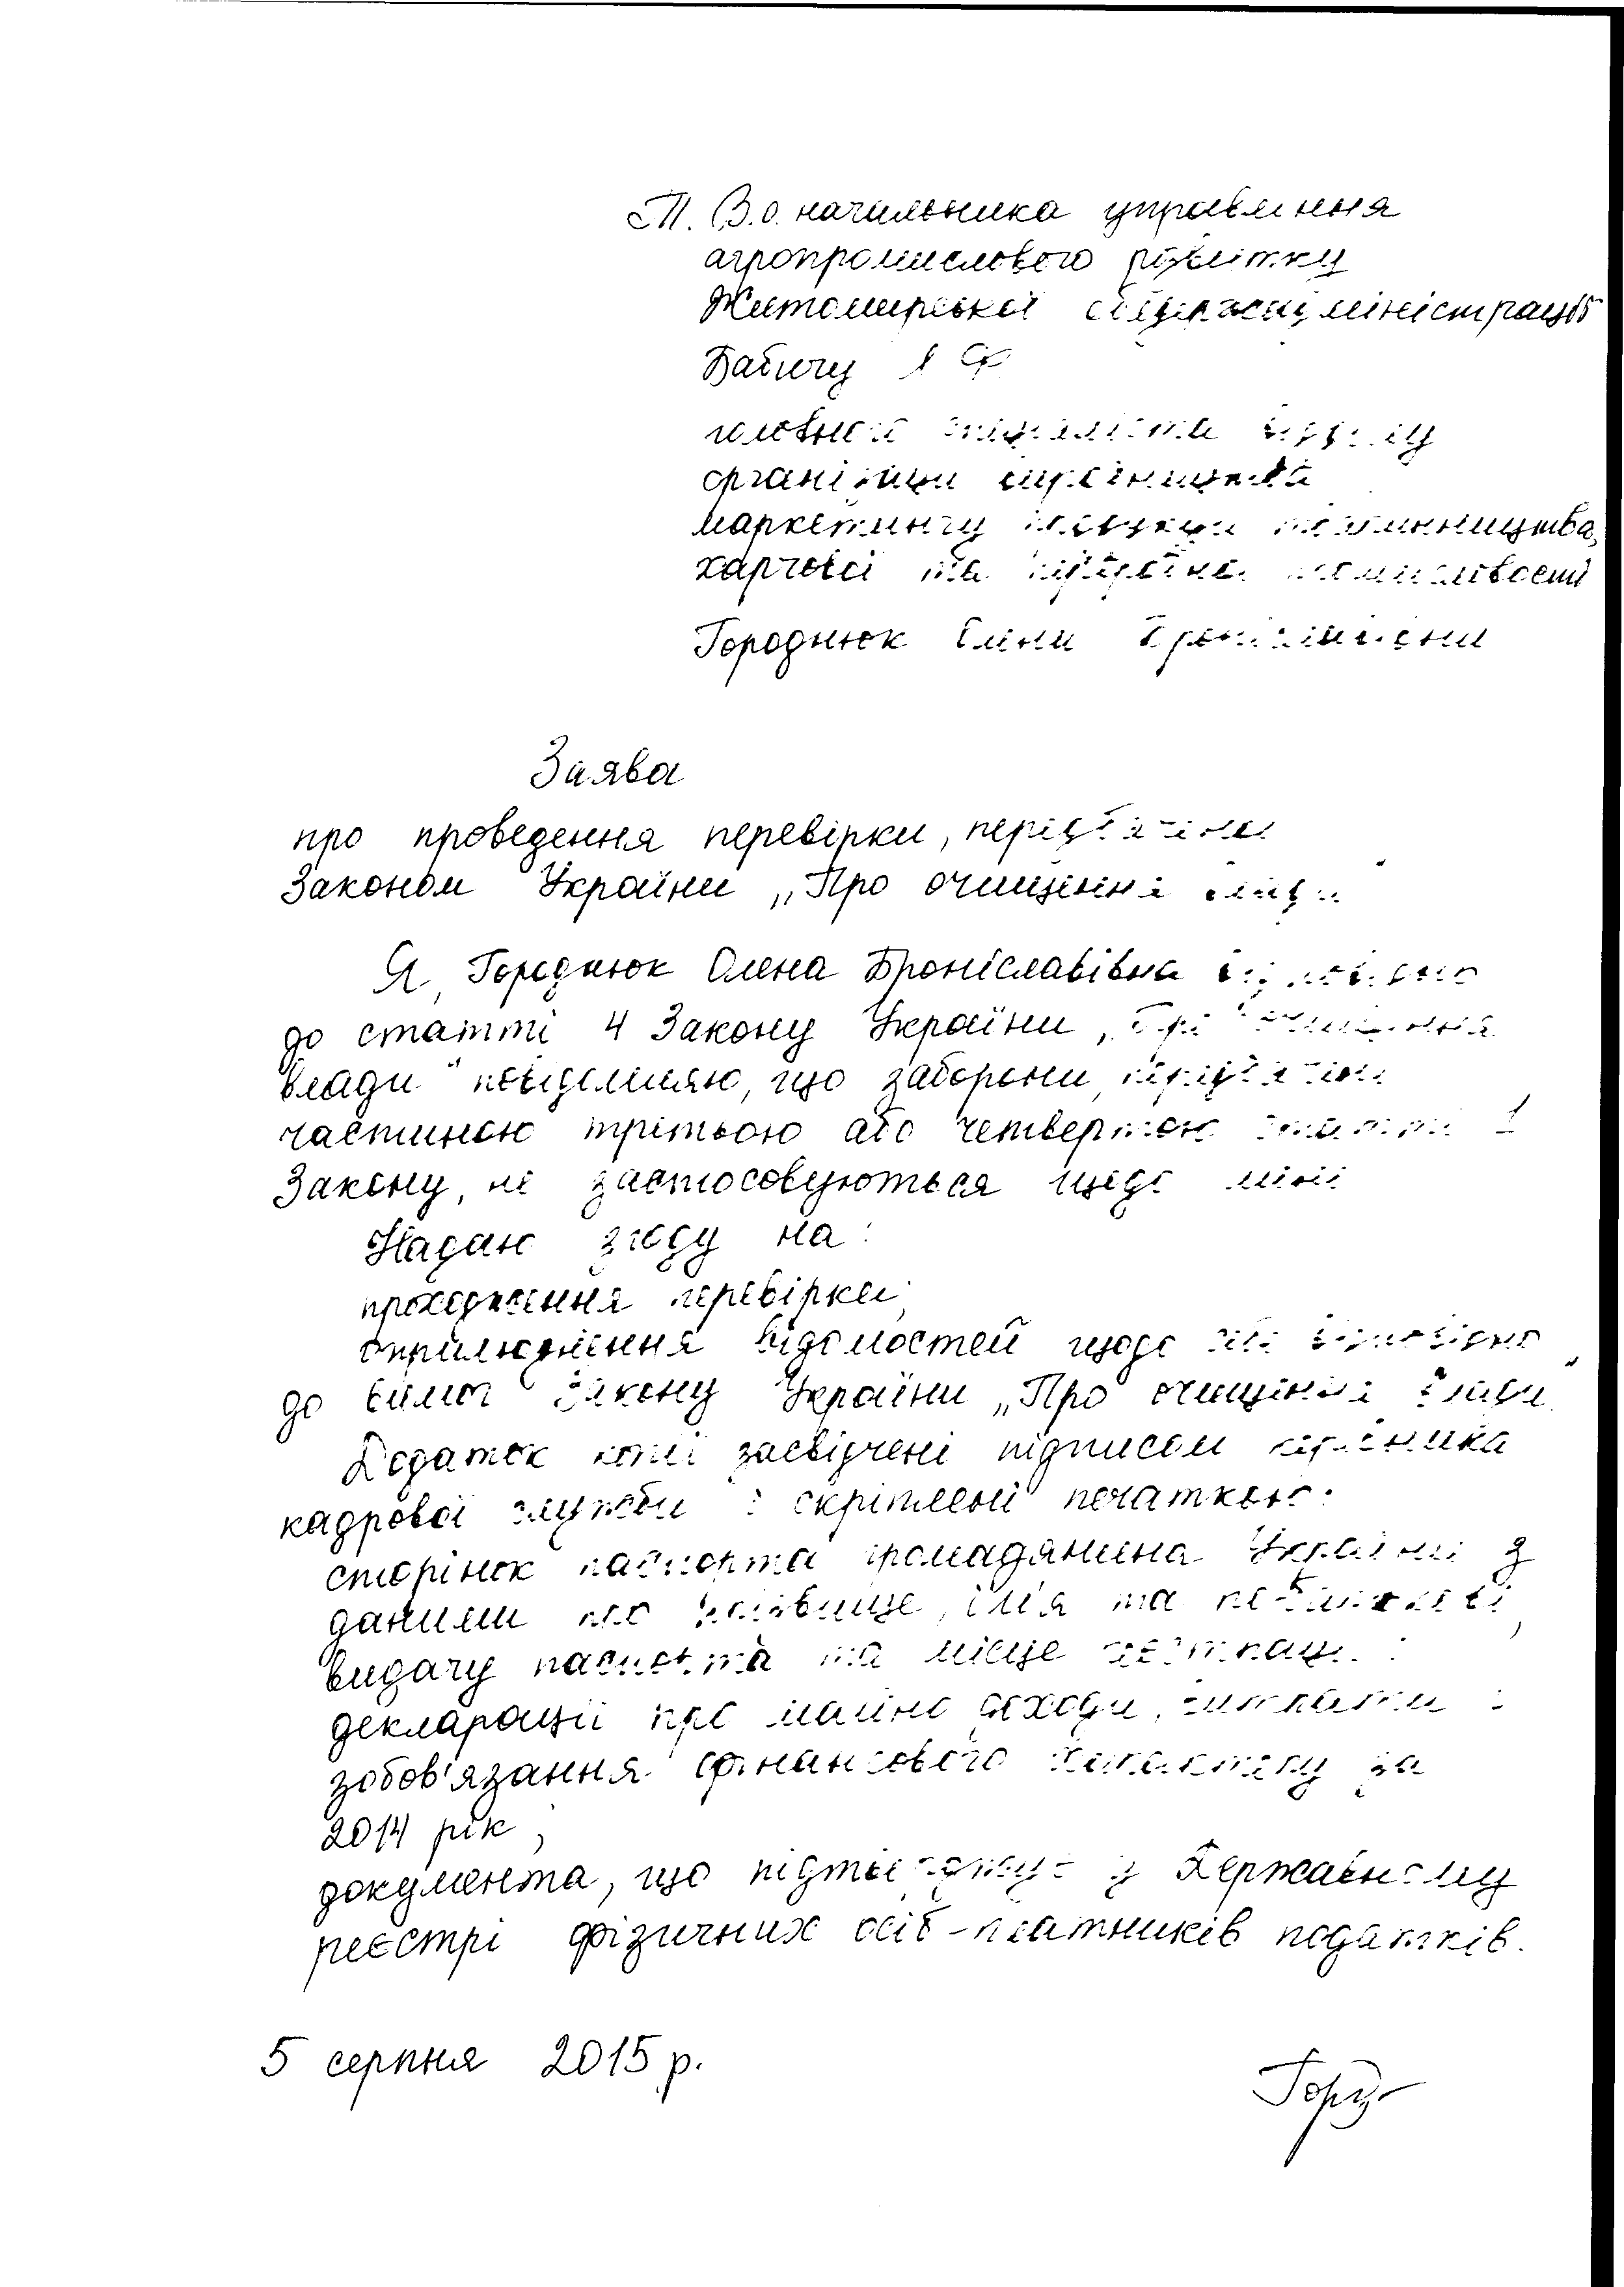 Т. В.о. начальника управління
агропромислового розвитку
Житомирської облдержадміністрації
Бабичу
головного спеціаліста відділу
організації виробництва
маркетингу продукції тваринництва,
харчової та переробної промисловості
Городнюк Олени Броніславівни
Заява
про проведення перевірки, передбаченої
Законом України „Про очищення влади"
Я, Городнюк Олена Броніславівна відповідно
до статті 4 Закону України „Про очищення
влади" повідомляю, що заборони, передбачені
частиною третьою або четвертою статті 1
Закону, не застосовуються щодо мене
Надаю згоду на:
проходження перевірки;
оприлюднення відомостей щодо себе відповідно
до вимог Закону України „Про очищення влади"
Додаток копії засвідчені підписом керівника
кадрової служби і скріплені печаткою:
сторінок паспорта громадянина України з
даними про прізвище, ім'я та по батькові,
видачу паспорта та місце реєстрації;
декларації про майно доходи, витрати і
зобов'язання фінансового характеру за
2014 рік,
документа, що підтверджує у Державному
реєстрі фізичних осіб-платників податків.
5 серпня 2015 р.